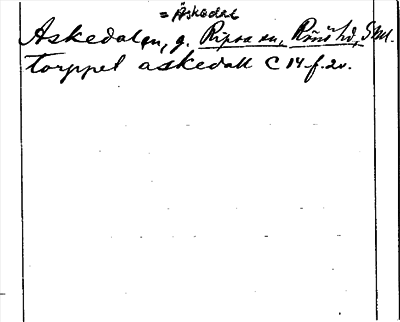 = Askedal
Askedalen, g. Ripsa sn, Rönö hd, Sdm.
torppet askedall C 14 f. 2v.